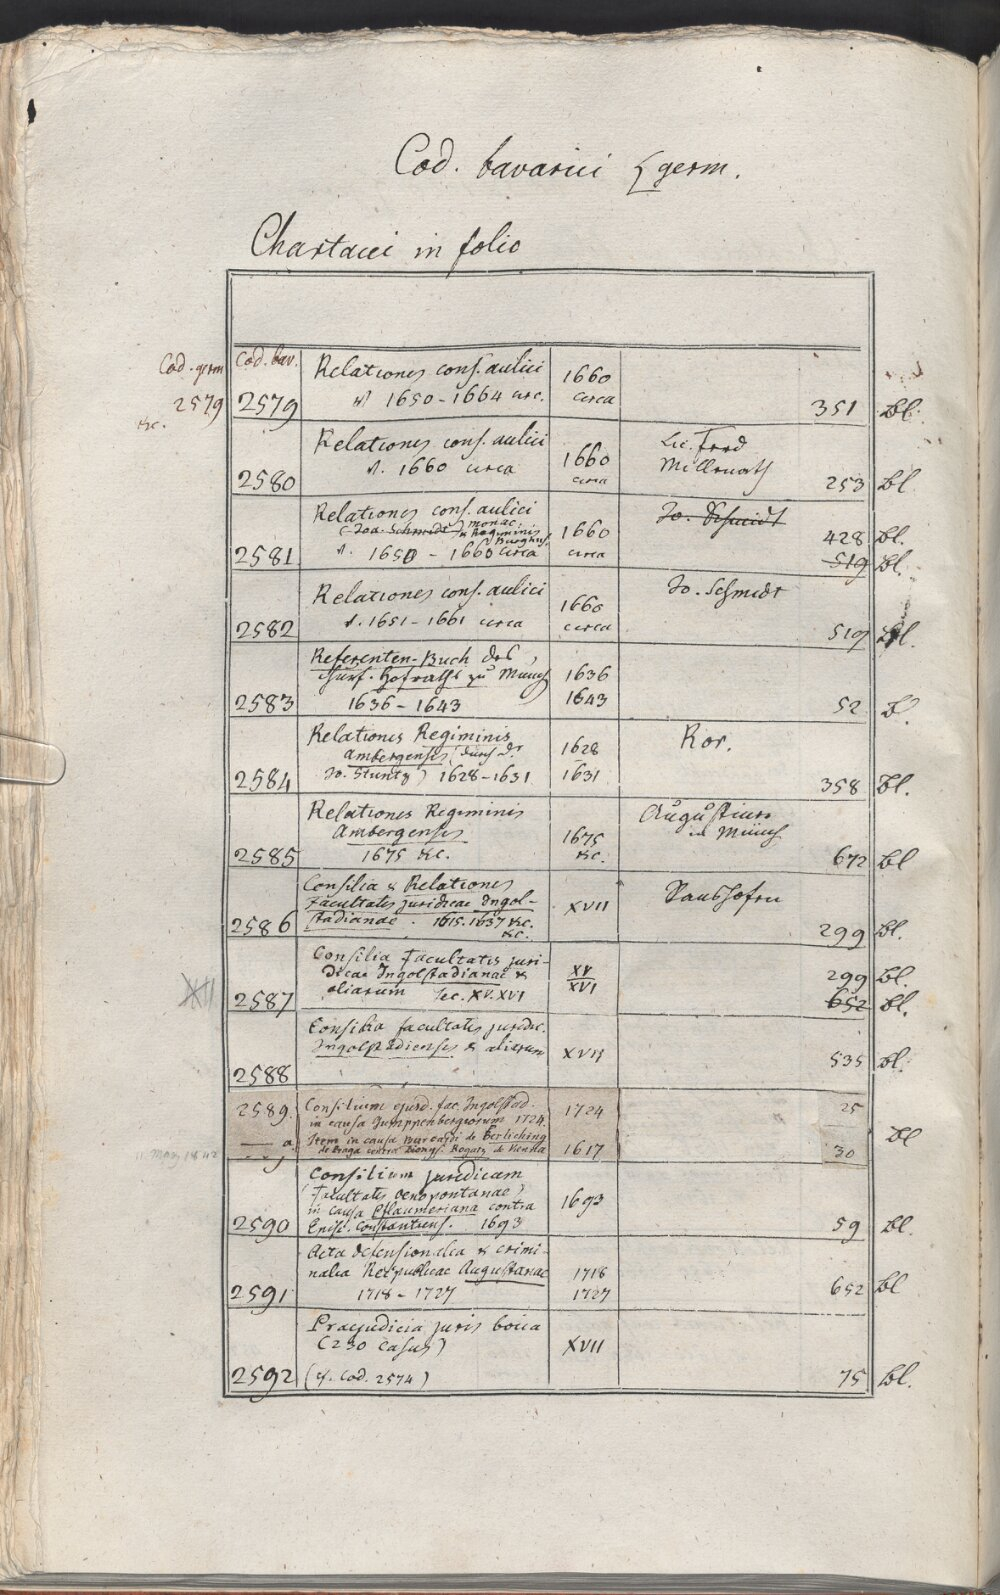 Cod. bavarici { germ.
Chartacei in folio
Cod. germ
2579
&c.
Cod. bav.
2579 Relationes cons. aulici 1660 circa 351 Bl.
1650-1664 circ.
2580 Relationes cons. aulici 1660 circa 253 Bl
1660 circa
2581 Relationes cons. aulici 1660 circa Jo. Schmidt 428 Bl.
(Joa. Schmidt) monac. & Regiminis Burghus. 519 Bl.
1650 - 1660 circa
2582 Relationes cons. aulici 1660 circa Jo. Schmidt 519 Bl.
1651-1661 circa
2583 Referenten-Buch des 1636 1643 52 Bl.
churf. Hofraths zu Münch
1636-1643
2584 Relationes Regiminis 1628 1631 Ror. 358 Bl.
Ambergensis (durch Dr
Jo. Stuntz) 1628-1631
2585 Relationes Regiminis 1675 &c. Augustiner in Münch 672 Bl
Ambergensis
1675 &c.
2586 Consilia & Relationes XVII 299 Bl.
Facultatis juridicae Ingol-
stadianae. 1615. 1637 &c.
&c.
2587 Consilia Facultatis juri- XV XVI 299 Bl.
dicae Ingolstadianae & 652 Bl.
aliarum Sec. XV. XVI
2588 Consilia facultatis juridic. XVII 535 Bl.
Ingolstadiensis & aliarum
2589. Consilium ejusd. fac. Ingolstad. 1724 25
in causa Gumppenbergiorum 1724. Bl
a. Item in causa Burcardi de Berliching
de Praga contra Dionys. Rogatz de Vienna 1617 30
11. May 1842
2590 Consilium juridicum 1693 59 Bl.
(Facultatis oenopontanae)
in causa Pflaumeriana contra
Episc. Constantiens. 1693
2591 Acta defensionalia & crimi- 1718 1727 652 Bl
nalia Reipublicae Augustanae
1718-1727
2592 Praejudicia juris boica XVII 75 Bl.
(230 Casus)
(cf. Cod. 2574)